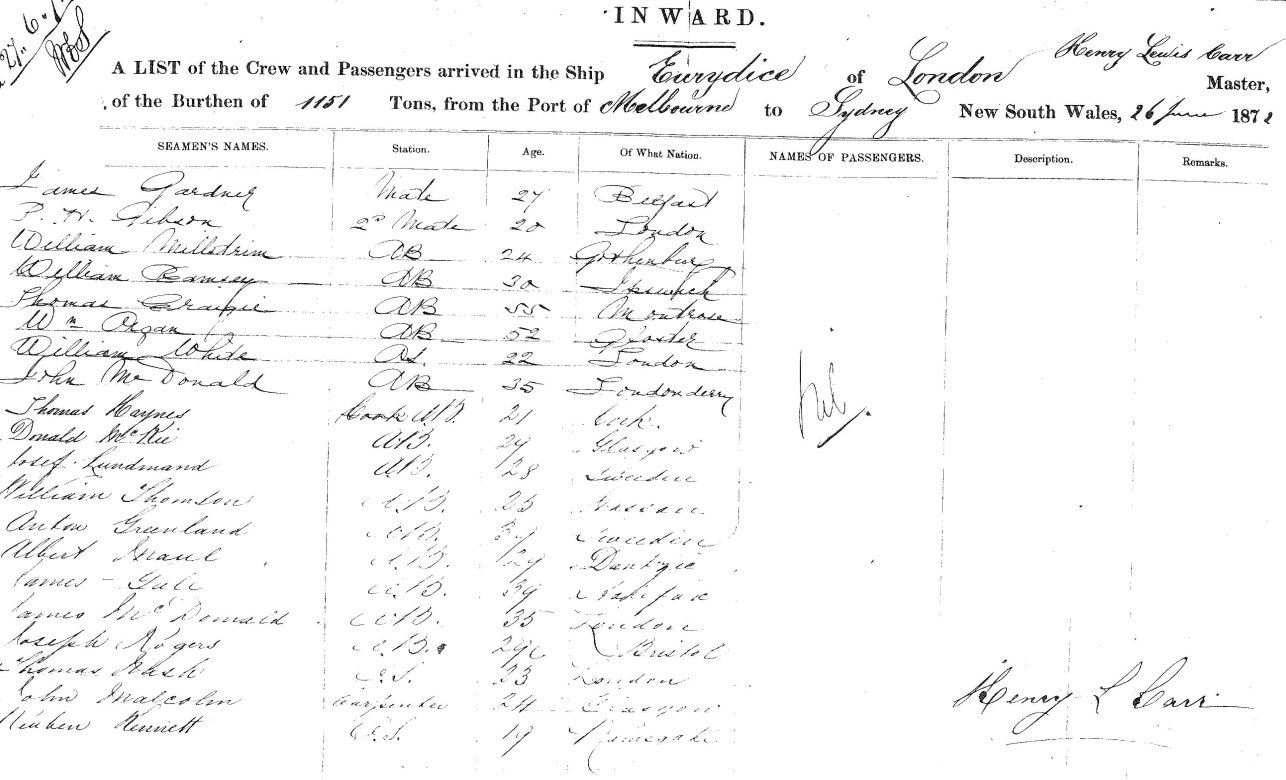 27. 6. 
INWARD.
Henry Lewis Carr
A LIST of the Crew and Passengers arrived in the Ship Eurydice of London Master,
of the Burthen of 1151 Tons, from the Port of Melbourne to Sydney New South Wales, 26 June 1872
SEAMEN'S NAMES. Station. Age. Of What Nation. NAMES OF PASSENGERS. Description. Remarks.
James Gardner Mate 27 Belfast
P. H. Gibson 2d Mate 20 London
William Millstrim AB 24 Gothenburg
William Ramsey AB 30 Ipswich
Thomas Craigie AB 55 Montrose
Wm Organ AB 52 Gloster
William White OS. 22 London
John McDonald AB 35 Londonderry
Thomas Haynes Cook A.B. 21 Cork.
Donald McKie A.B. 29 Glasgow
Josef Lundmand A.B. 28 Sweden
William Thomson A.B. 25 Nassau
Anton Greenland A.B. 37 Sweden
Albert A.B. 29 Dantzic
James Yule A.B. 39 Halifax
James McDonald A.B. 35 London
Joseph Rogers A.B. 29 Bristol
Thomas Nash O.S. 23 London
John Malcolm Carpenter 24 Glasgow
Reuben Kennett O.S. 19 Ramsgate
Nil.
Henry L Carr